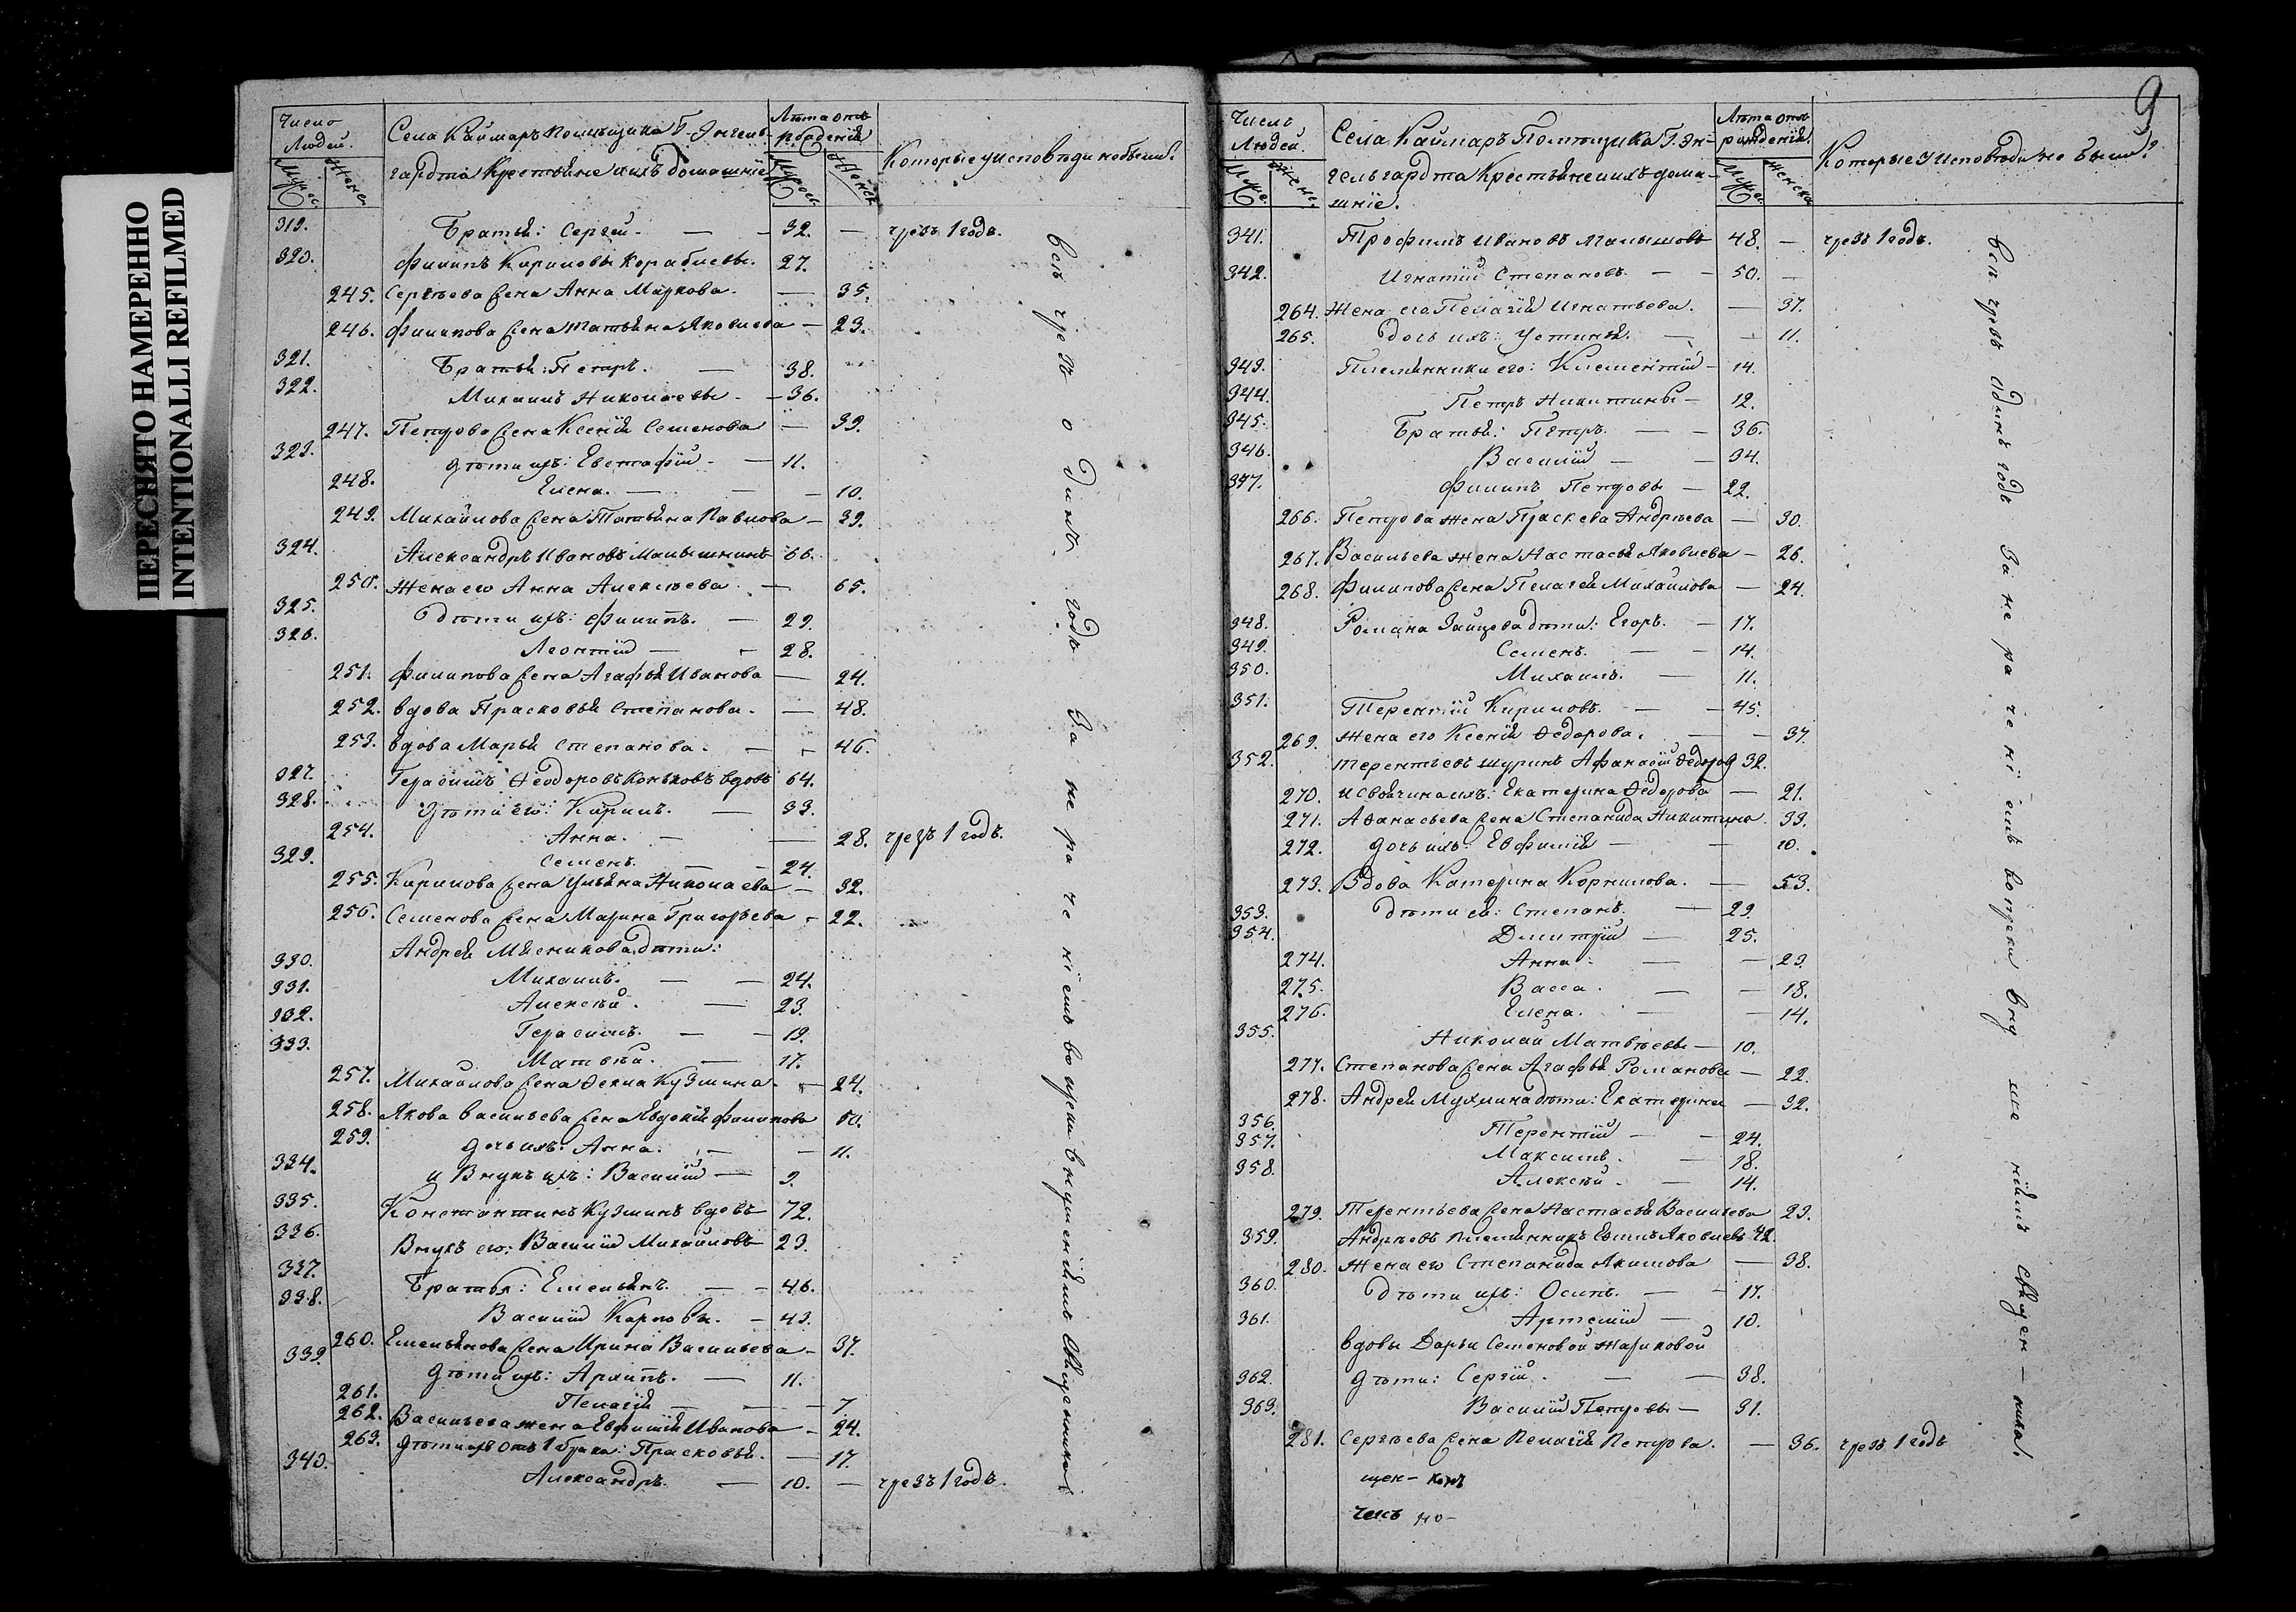 ПЕРЕСНЯТО НАМЕРЕННО
INTENTIONALLI REFILMED
Число Людей.
Муже.
Женс.
Села Каймаръ Помѣщика Г. Энгель-
гардта Крестьяне и ихъ домашніе
Лѣта отъ рожденія
Мужес.
Женск.
Которые у исповѣди не были?
319. Братья: Сергей. — 32. — чрезъ 1 годъ.
320. Филипъ Кириловы Кораблевы. 27.
245. Сергѣева Жена Анна Маркова. — 35.
246. Филипова Жена Татьяна Яковлева — 23.
321. Братья: Петръ. — 38.
322. Михаилъ Николаевы — 36.
247. Петрова Жена Ксенія Семенова — 39.
323. дѣти ихъ: Евстафій — 11.
248. Елена. — — — 10.
249. Михайлова Жена Татьяна Павлова — 39.
324. Александръ Ивановъ Малышкинъ 66.
250. Жена его Анна Алексѣева — 65.
325. дѣти ихъ: Филипъ. — 29.
326. Леонтій — — 28.
251. Филипова Жена Агафья Иванова — 24.
252. вдова Прасковья Степанова. — 48.
253. вдова Марья Степанова. — — 46.
327. Герасимъ Ѳеодоровъ Коньковъ вдовъ 64.
328. Дѣти его: Кирилъ. — 33.
254. Анна. — — 28. чрезъ 1 годъ.
329. Семенъ. — — 24.
255. Кирилова Жена Ульяна Николаева — 32.
256. Семенова Жена Марина Григорьева — 22.
Андрея Мясникова дѣти:
330. Михаилъ. — — 24.
331. Алексѣй. — 23.
332. Герасимъ. — — 19.
333. Матвѣй. — 17.
257. Михайлова Жена Ѳекла Кузмина — 24.
258. Якова Васильева Жена Евдокія Филипова 60.
259. дочь ихъ: Анна. — — 11.
334. и Внукъ ихъ: Василій — 9.
335. Константинъ Кузминъ вдовъ 72.
336. Внукъ его: Василій Михайловъ 23.
337. Братья: Емельянъ — — 46.
338. Василій Карповы. — 43.
260. Емельянова Жена Ирина Васильева — 37.
339. дѣти ихъ: Архипъ. — 11.
261. Пелагія — — — 7
262. Васильева жена Евфимія Иванова — 24.
263. дѣти ихъ отъ 1 брака: Прасковья. — 17.
340. Александръ. — 10. — чрезъ 1 годъ.
всѣ чрезъ одинъ годъ За нераченіемъ вопреки внушеніямъ Священника
9
Число Людей.
Муже.
Женс.
Села Каймаръ Помѣщика Г. Эн-
гельгардта Крестьяне и ихъ дома-
шніе.
Лѣта отъ рожденія.
Мужес.
Женска
Которые у исповѣди не были?
341. Трофимъ Ивановъ Малышовъ 48. — чрезъ 1 годъ.
342. Игнатій Степановъ. — — 50. —
264. Жена его Пелагія Игнатьева. — 37.
265. Дочь ихъ: Устинья. — — 11.
343. Племянники его: Клементій — 14.
344. Петръ Никитины — 12.
345. Братья: Петръ. — — 36.
346. Василій — — 34.
347. Филипъ Петровы — 22.
266. Петрова жена Праскева Андрѣева — 30.
267. Васильева жена Настасья Яковлева — 26.
268. Филипова Жена Пелагея Михайлова — 24.
348. Романа Зайцева дѣти: Егоръ. — 17.
349. Семенъ. — — 14.
350. Михаилъ. — 11.
351. Терентій Кириловъ. — — 45.
269. Жена его Ксенія Ѳедорова. — — 37.
352. Терентьевъ шуринъ Афанасій Ѳедоров 32.
270. и свойчина ихъ: Екатерина Ѳедорова — 21.
271. Аѳанасьева Жена Степанида Никитина. 33.
272. дочь ихъ: Евфимія — — 10.
273. Вдова Катерина Корнилова. — 53.
353. дѣти ея: Степанъ. — 29.
354. Дмитрій — 25.
274. Анна: — — 23.
275. Васса. — — 18.
276. Елена. — — 14.
355. Николай Матвѣевы — 10.
277. Степанова Жена Агафья Романова — 22.
278. Андрея Мухина дѣти: Екатерина — 32.
356. Терентій — — 24.
357. Максимъ. — 18.
358. Алексѣй. — 14.
279. Терентьева Жена Настасья Васильева 23.
359. Андрѣевъ племянникъ Яковлевъ 42.
280. Жена его Степанида Акимова — 38.
360. Дѣти ихъ: Осипъ. — — 17.
361. Артемій — 10.
вдовы Дарьи Семеновой Жариковой
362. дѣти: Сергій. — — 38.
363. Василій Петровы — 31.
281. Сергѣева Жена Пелагія Петрова. — 36. чрезъ 1 годъ
всѣ чрезъ одинъ годъ За нераченіемъ вопреки внушеніямъ Священ — ника